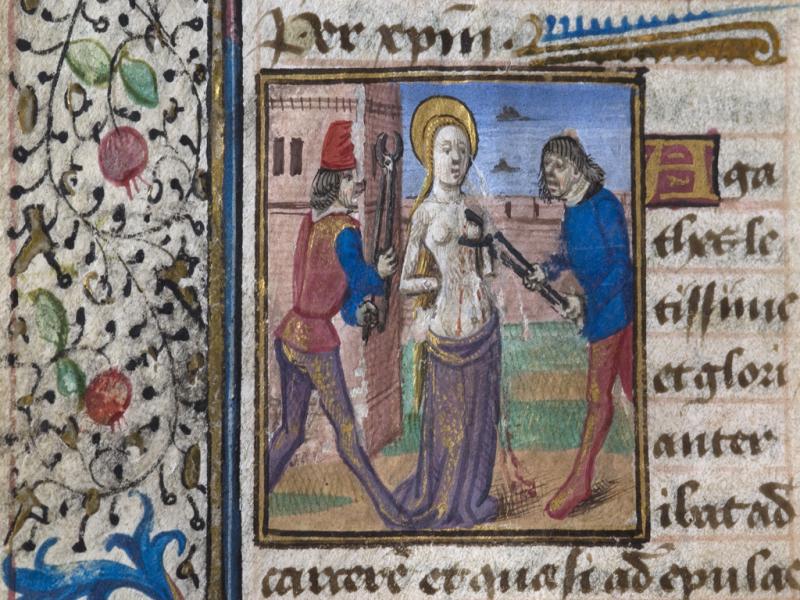 Per xpm̄
Aga
thes le
tissime
et glori
anter
ibat ad
carcere et quasi ad epulae